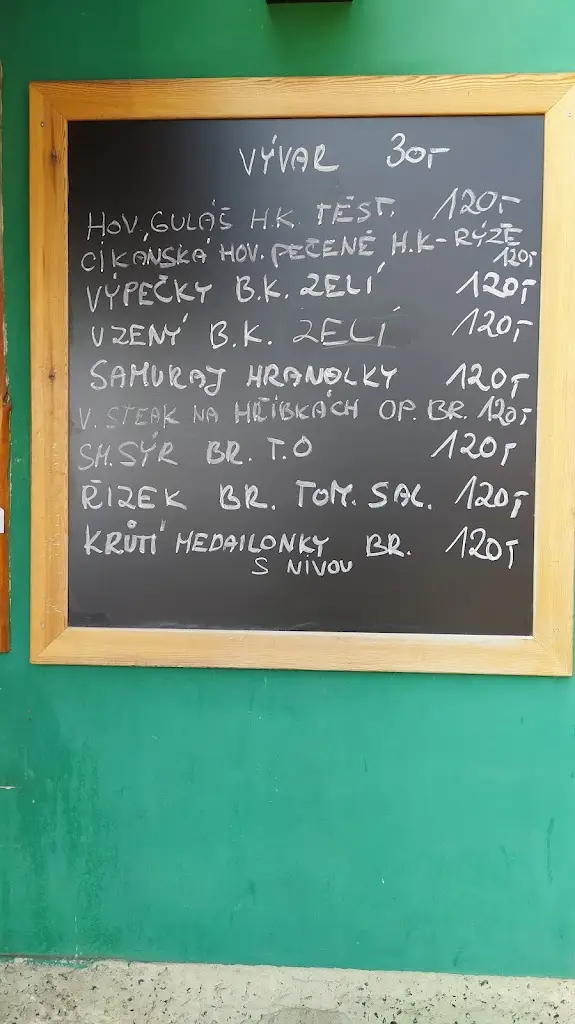 VÝVAR 30,-
HOV. GULÁŠ H.K. TĚST. 120,-
CIKÁNSKÁ HOV. PEČENĚ H.K-RÝŽE 120,-
VÝPEČKY B.K. ZELÍ 120,-
UZENÝ B.K. ZELÍ 120,-
SAMURAJ HRANOLKY 120,-
V. STEAK NA HŘÍBKÁCH OP. BR. 120,-
SM. SÝR BR. T.O 120,-
ŘÍZEK BR. TOM. SAL. 120,-
KRŮTÍ MEDAILONKY BR. 120,-
S NIVOU